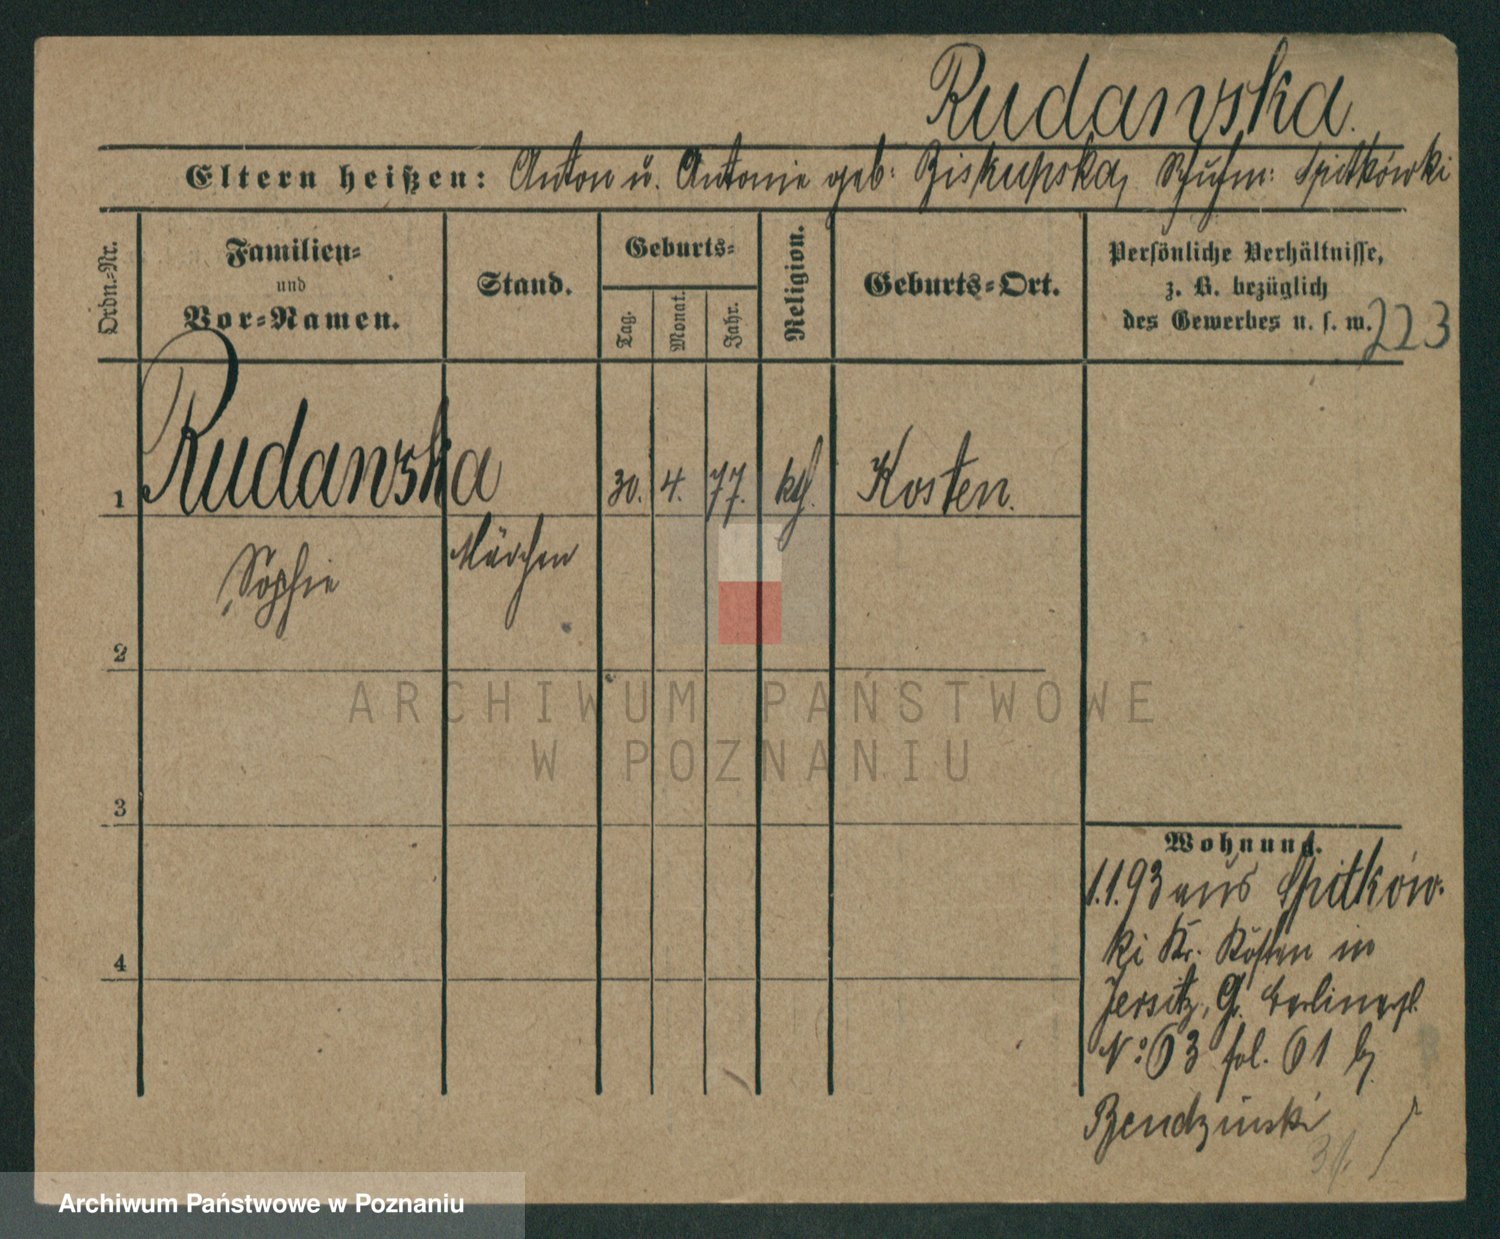 Rudawska.
Eltern heißen: Anton u. Antonie geb: Biskupska, Schuhm: Spitkówki
Ordn.-Nr.
Familien-
und
Vor-Namen.
Stand.
Geburts-
Tag.
Monat.
Jahr.
Religion.
Geburts-Ort.
Persönliche Verhältnisse,
z. B. bezüglich
des Gewerbes u. s. w.
223
1 Rudawska 30. 4. 77. kth. Kosten.
Sophie Mädchen
2
3
4
Wohnung.
1.1.93 aus Spitków-
ki Kr. Kosten in
Jersitz, Gr. Berlinerstr.
No: 63 fol. 61 b/
Bendzinski
ARCHIWUM PAŃSTWOWE
W POZNANIU
Archiwum Państwowe w Poznaniu